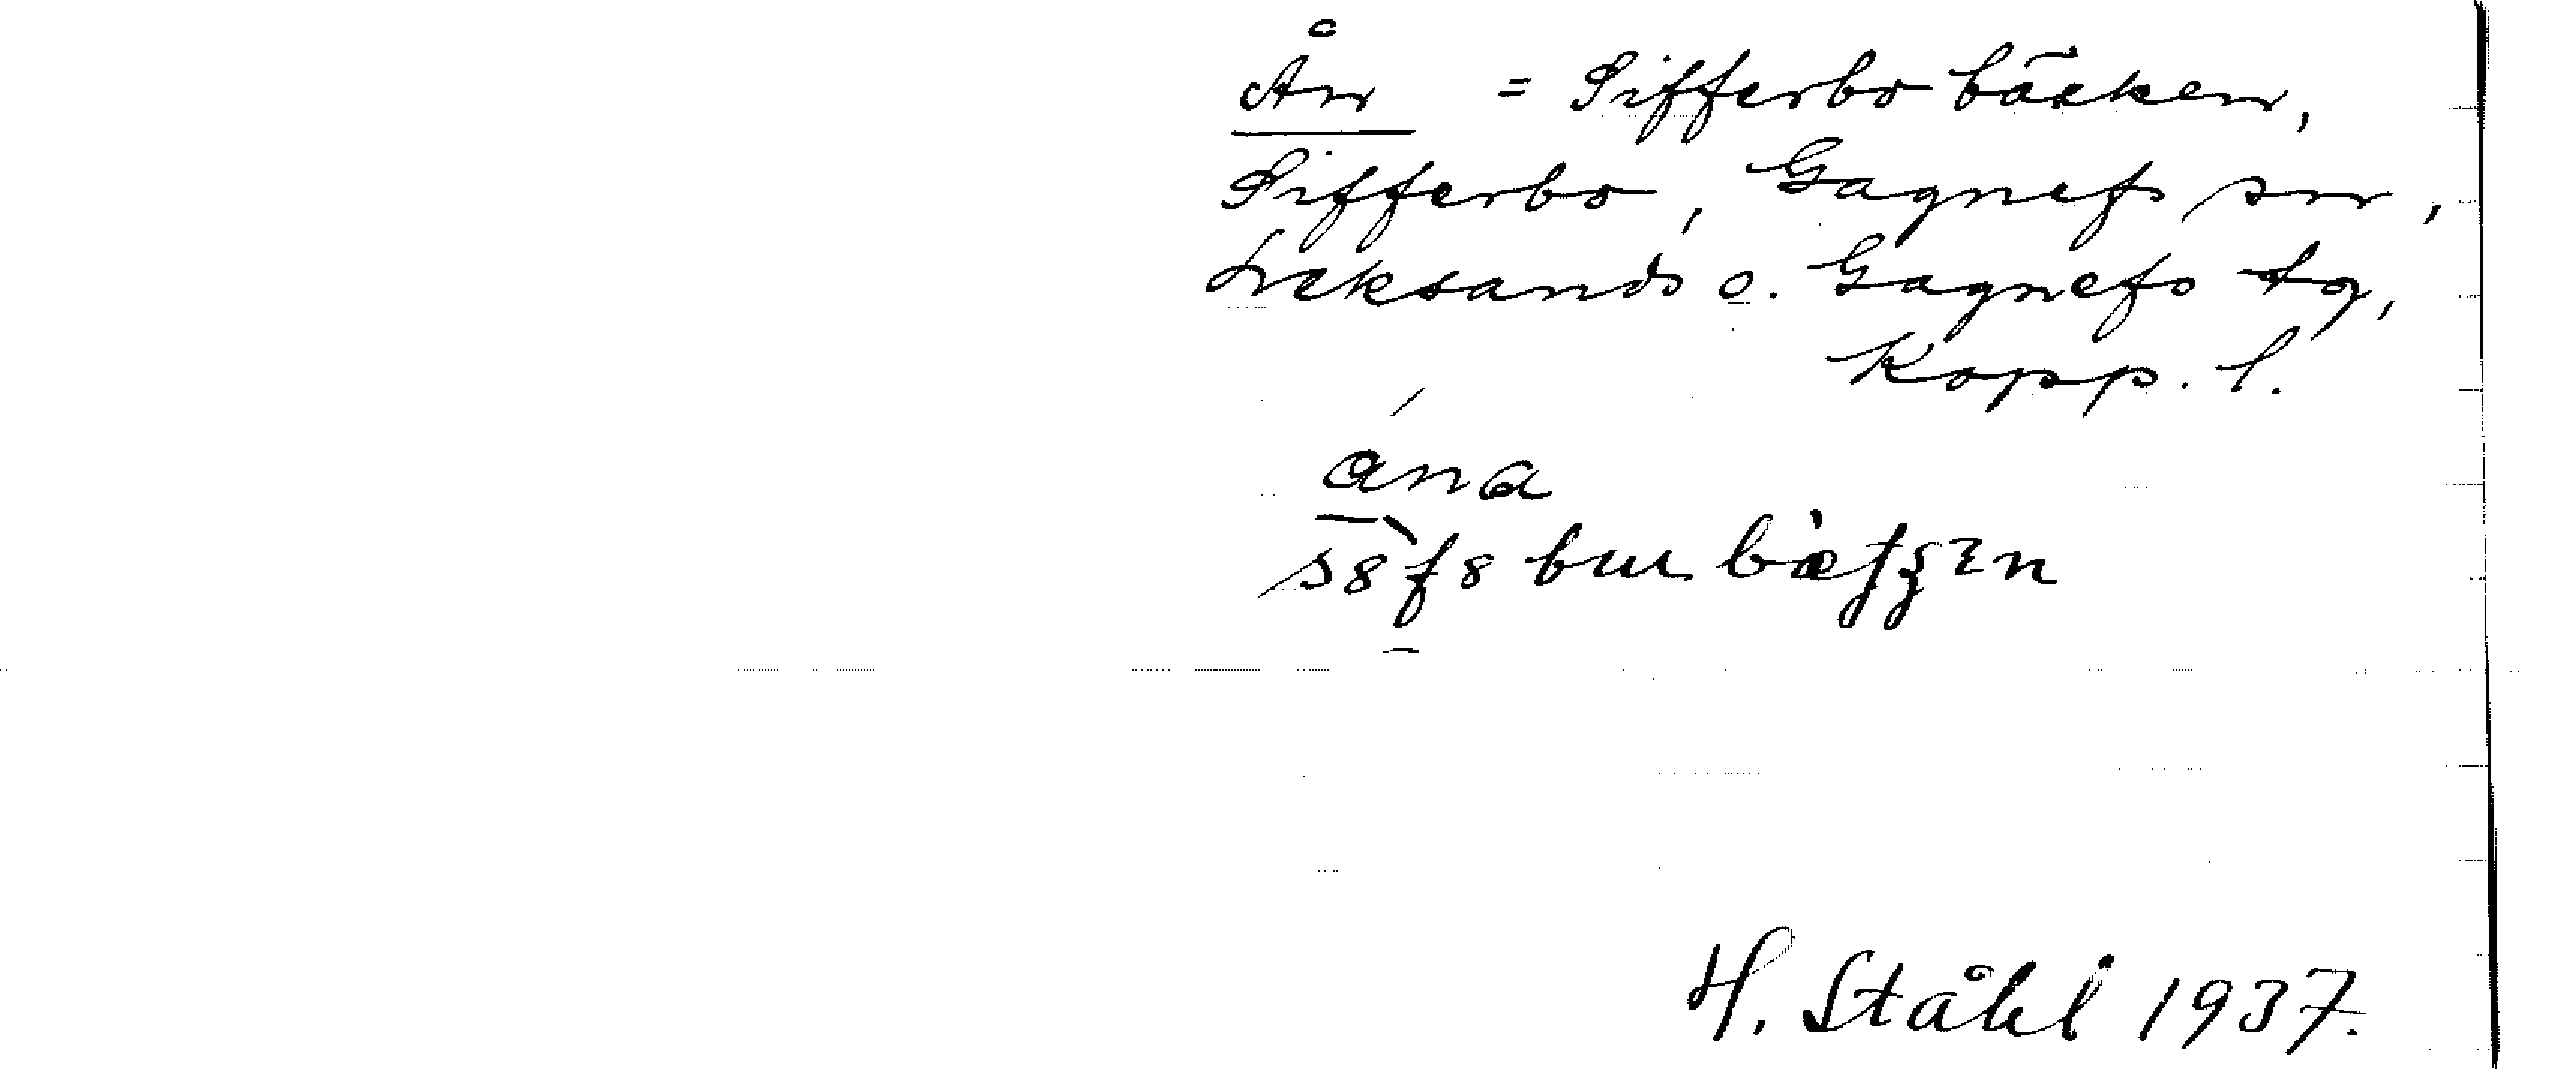 Ån = Sifferbo bäcken,
Sifferbo, Gagnefs sn,
Leksands o. Gagnefs tg,
Kopp. l.
ána
H. Ståhl 1937.